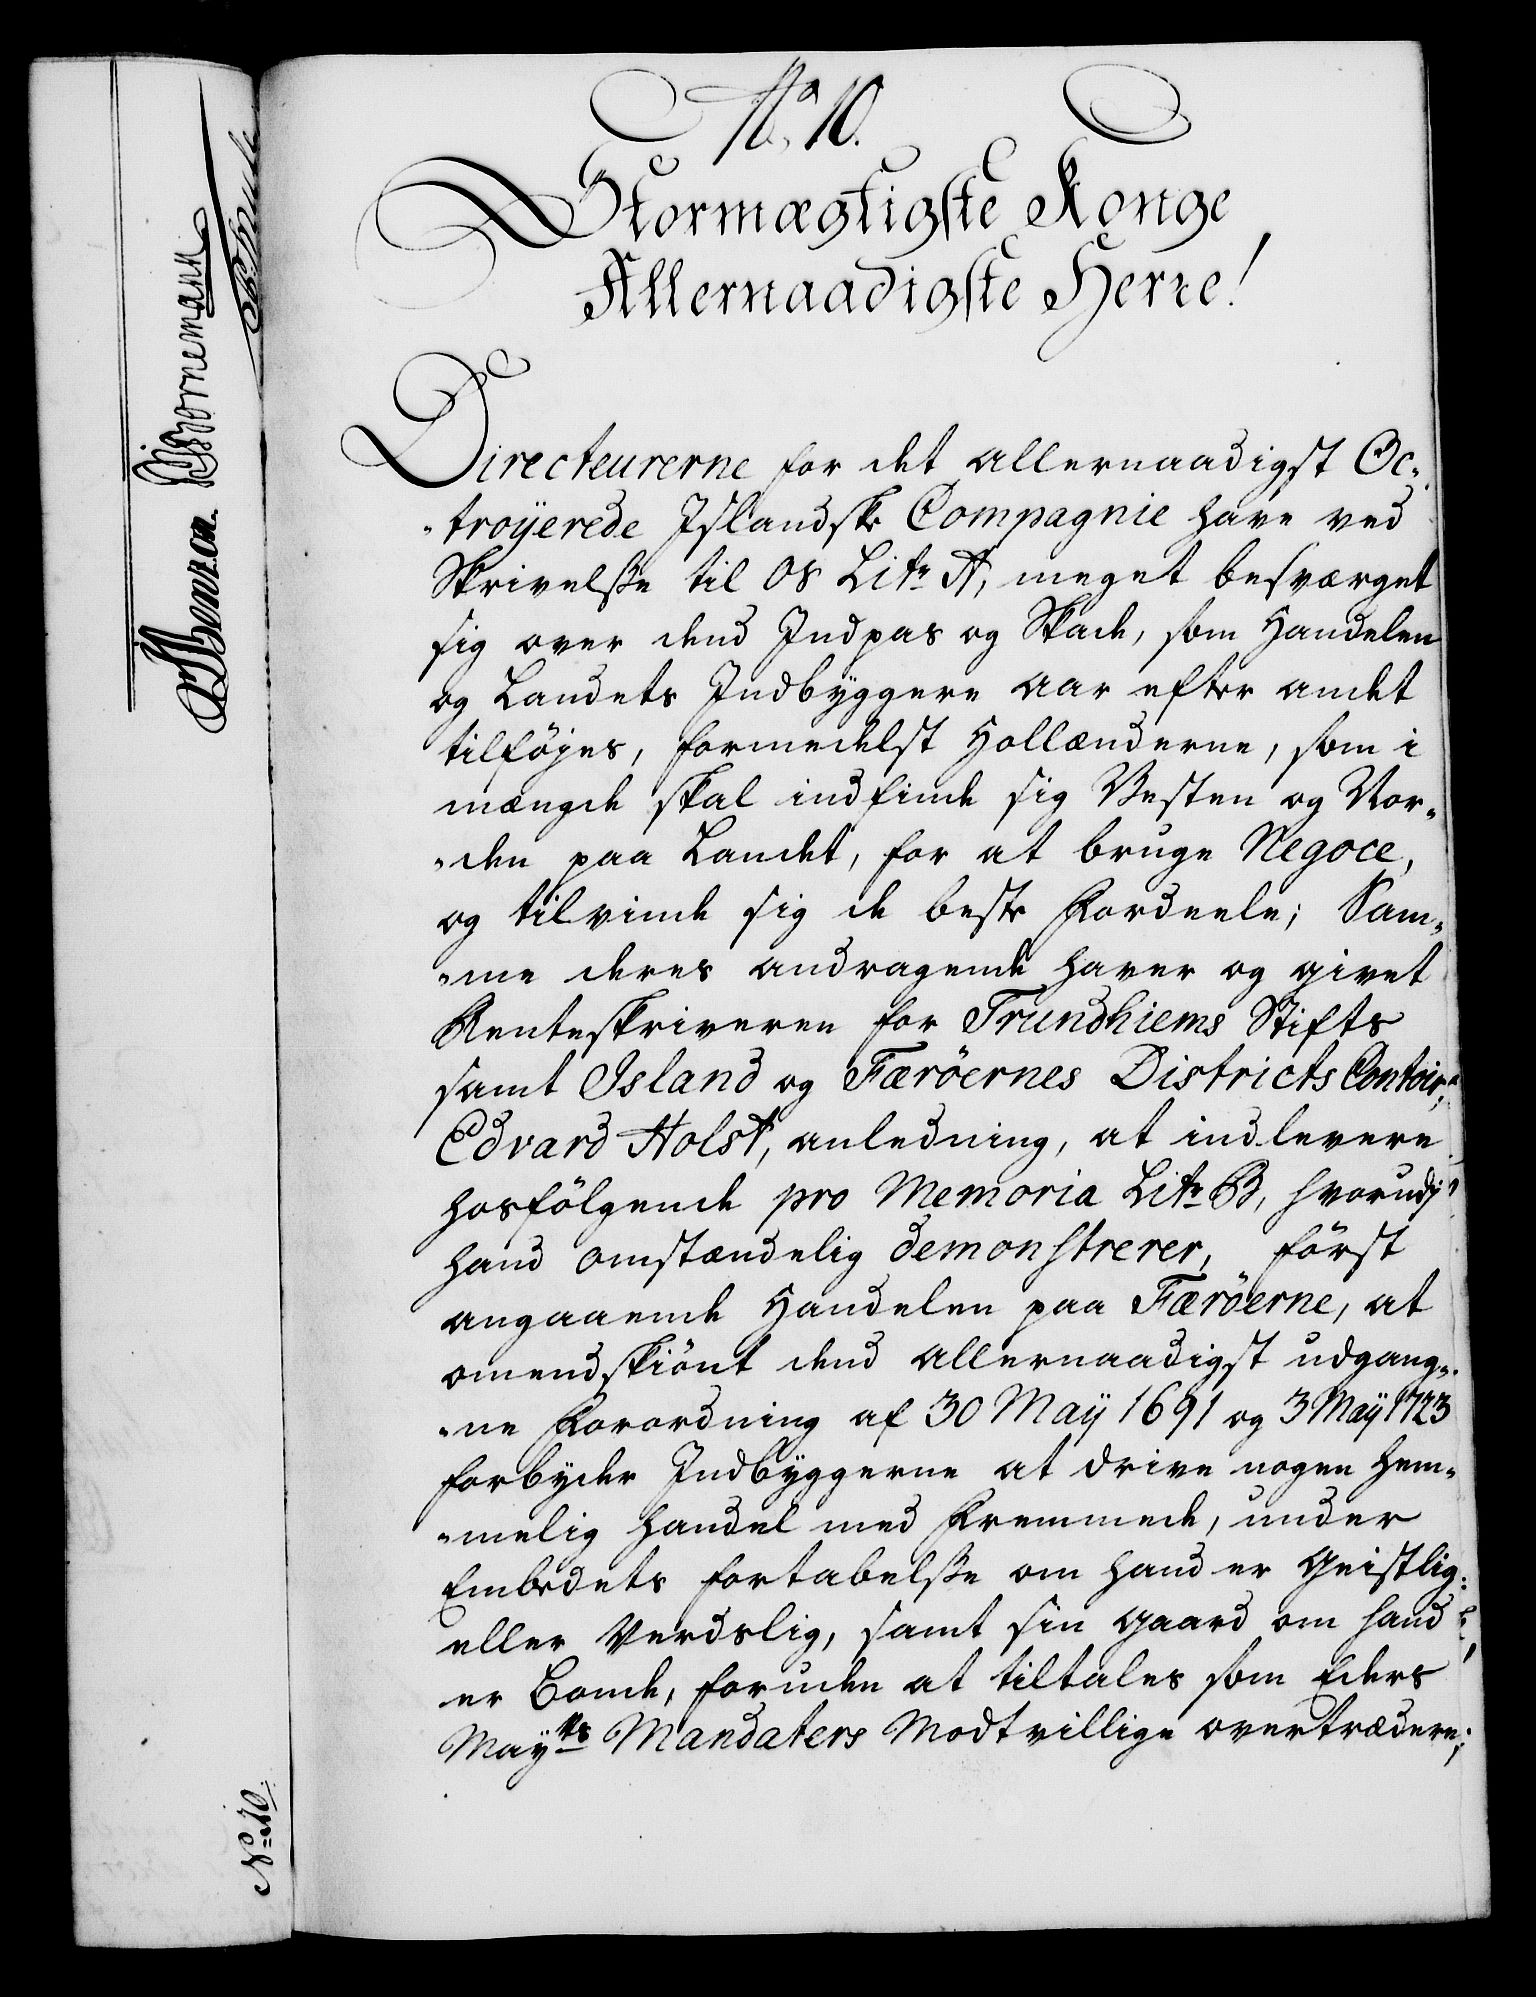 No. 10.
Stormægtigste Konge
Allernaadigste Herre!
Directeurerne for det allernaadigst Oc-
-troÿerede Islandske Compagnie have ved
Skrivelsse til os Litr A, meget besværget
sig over dend Indpas og Skade, som Handelen
og Landets Indbÿggere aar efter andet
tilföjes, formedelst Hollænderne, som i
mængde skal indfinde sig Vesten og Nor-
-den paa Landet, for at bruge Negoce,
og tilvinde sig de beste Fordeele; Sam-
-me deres andragende haver og givet
Renteskriveren for Trundhiems Stifts
samt Island og Færöernes Districts Contoir,
Edvard Holst, anledning, at indlevere
hosfölgende pro Memoria Litr B, hvorudj
hand omstændelig demonstrerer, först
angaaende Handelen paa Færöerne, at
omendskiönt dend allernaadigst udgang-
-ne Forordning af 30 Maÿ 1691 og 3 Maÿ 1723
forbÿder Indbÿggerne at drive nogen hem-
-melig handel med Fremmede, under
Embedets fortabelsse om hand er Geistlig
eller Verdslig, samt sin Gaard om hand
er Bonde, foruden at tiltales som Eders
Maÿts Mandaters Modtvillige overtrædere;
Benzon. Bornemann
No 10.